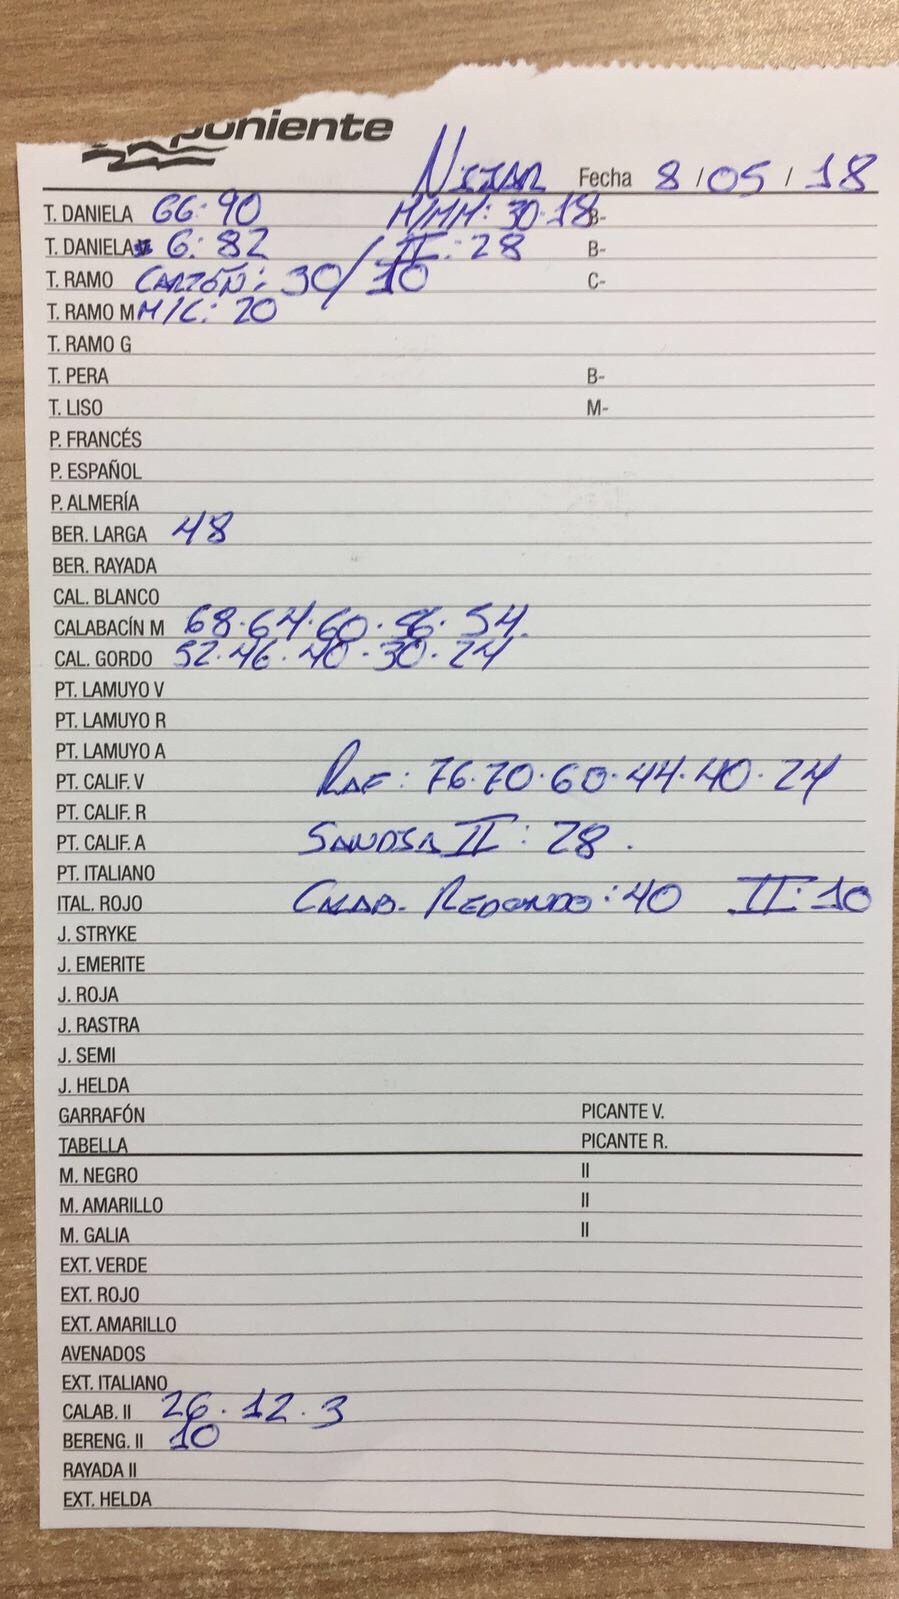 poniente
NIJAR Fecha 8 / 05 / 18
T. DANIELA GG: 90 M/MM: 30·18 B-
T. DANIELA G: 82 / II: 28 B-
T. RAMO CARTÓN: 30/10 C-
T. RAMO M M/C: 20
T. RAMO G
T. PERA B-
T. LISO M-
P. FRANCÉS
P. ESPAÑOL
P. ALMERÍA
BER. LARGA 48
BER. RAYADA
CAL. BLANCO
CALABACÍN M 68·64·60·56·54.
CAL. GORDO 52·46·40·30·24
PT. LAMUYO V
PT. LAMUYO R
PT. LAMUYO A
PT. CALIF. V RAF: 76·70·60·44·40·24
PT. CALIF. R
PT. CALIF. A SANDIA II: 28.
PT. ITALIANO
ITAL. ROJO CALAB. REDONDO: 40 II: 10
J. STRYKE
J. EMERITE
J. ROJA
J. RASTRA
J. SEMI
J. HELDA
GARRAFÓN PICANTE V.
TABELLA PICANTE R.
M. NEGRO II
M. AMARILLO II
M. GALIA II
EXT. VERDE
EXT. ROJO
EXT. AMARILLO
AVENADOS
EXT. ITALIANO
CALAB. II 26·12·3
BERENG. II 10
RAYADA II
EXT. HELDA